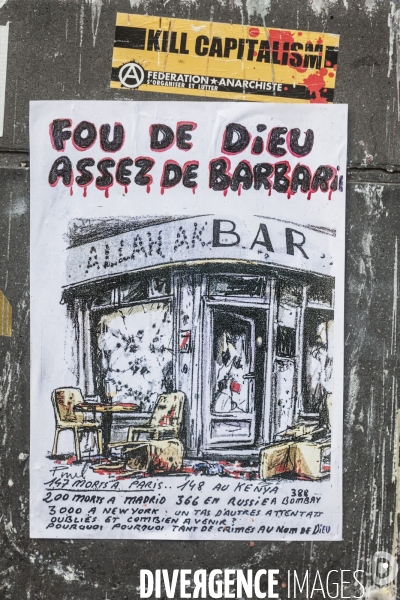 KILL CAPITALISM
FEDERATION★ANARCHISTE
S'ORGANISER ET LUTTER
FOU DE DiEU
ASSEZ DE BARBARiE
ALLAH AKBAR..
7
147 MORTS A PARIS.. 148 AU KENYA
200 MORTS A MADRID 366 EN RUSSIE 388 A BOMBAY
3000 A NEW YORK. UN TAS D'AUTRES ATTENTATS
OUBLIÉS ET COMBIEN A VENIR?
POURQUOI POURQUOI TANT DE CRIMES AU NOM DE DIEU
DIVERGENCE IMAGES